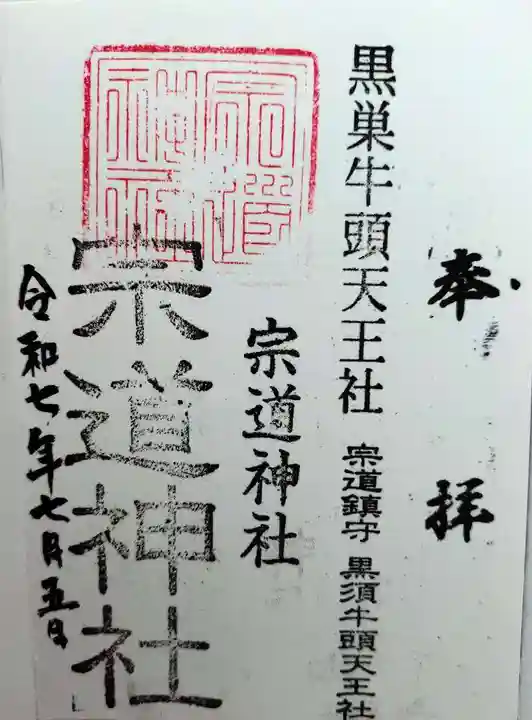 奉拝
黒巣牛頭天王社
宗道鎮守 黒須牛頭天王社
宗道神社
宗道神社
令和七年七月五日